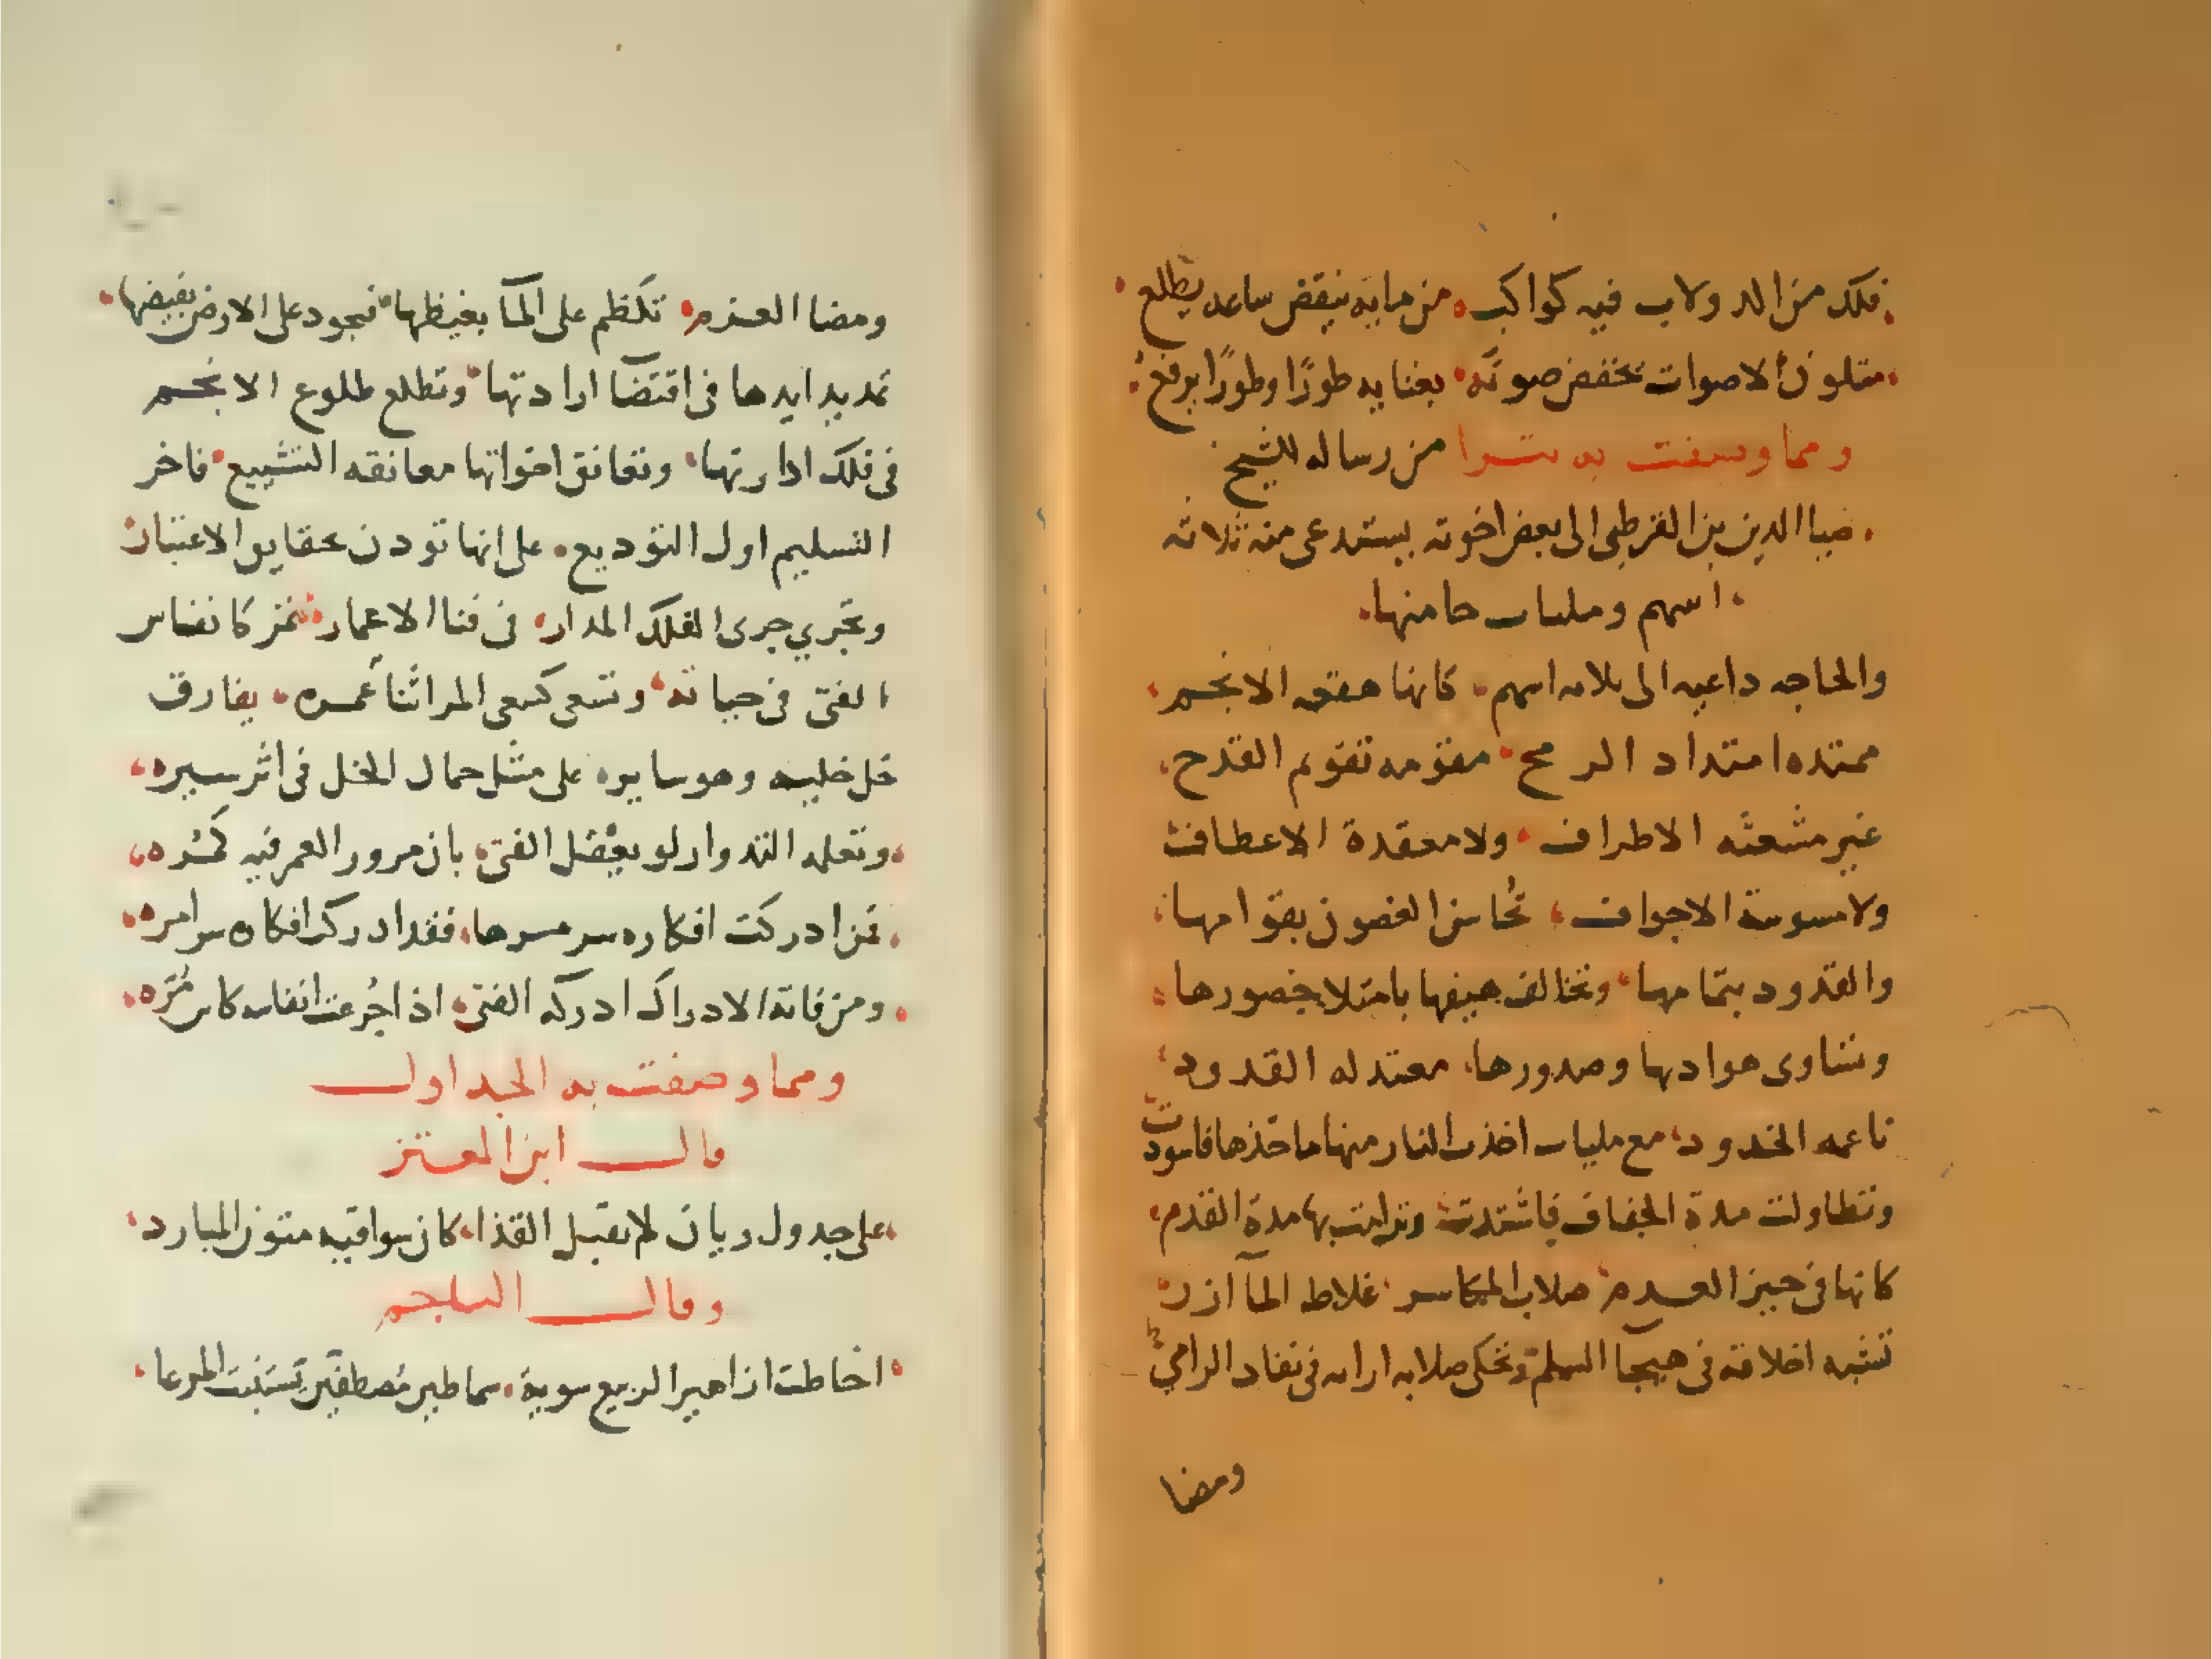 فلك من الدولاب فيه كواكب من مايه ينقض ساعه يطلع
متلون الاصوات تخفض صوته بغنايه طورًا وطورًا يرفع
ومما وصفت به نثرا من رساله للشيخ
ضيا الدين بن القرطبى الى بعض اخوته يستدعى منه ثلاثه
اسهم ومليات حامنها
والحاجه داعيه الى ثلاثه اسهم كانها هقعه الانجم
ممتده امتداد الرمح مقومه تقوم القدح
غير مشعثه الاطراف ولا معقدة الاعطاف
ولا مسوسة الاجواف تحاسن الغصون بقوامها
والقدود بتمامها وتخالف هيفها بامتلا خصورها
وتساوى هواديها وصدورها معتدله القدود
ناعمه الخدود مع مليات اخذت النار منها ماخذها فاسودت
وتطاولت مدة الجفاف فاشتدت وترامت بها مدة القدم
كانها فى حيز العدم صلاب المكاسر غلاظ المآازر
تشبه اخلاقه فى هيجا السلم وتحكى صلابه ارايه فى نفاد الراى
ومضا
ومضا العزم تكظم على المآ بغيظها فيجود على الارض بفيضها
تمد يد ايدها فى اقتضآ ارادتها وتطلع طلوع الانجم
فى فلك ادارتها وتعانق اخواتها معانقه التشييع فاخر
التسليم اول التوديع على انها تودن بحقايق الاعتبار
وتجرى جرى الفلك المدار فى فنا الاعمار تمر كانفاس
الفتى فى حياته وتسعى كسعى المرا ثنا عمره يفارق
خل خليله وهو سايره على مثل حمال الخل فى اثر سيره
وتعله التدوار لو يعقل الفتى بان مرور العمر فيه كمره
فمن ادركت افكاره سر سرها فقد ادركت افكاه سر امره
ومن فاته الادراك ادركه الفتى اذا جرعت انفاسه كاس مره
ومما وصفت به الجداول
قال ابن المعتز
على جدول ريان لا يقبل القذا كان سواقيه متون المبارد
وقال
احاطت ازاهير الربيع سوية سماطين مصطفين تستنبت المرعا